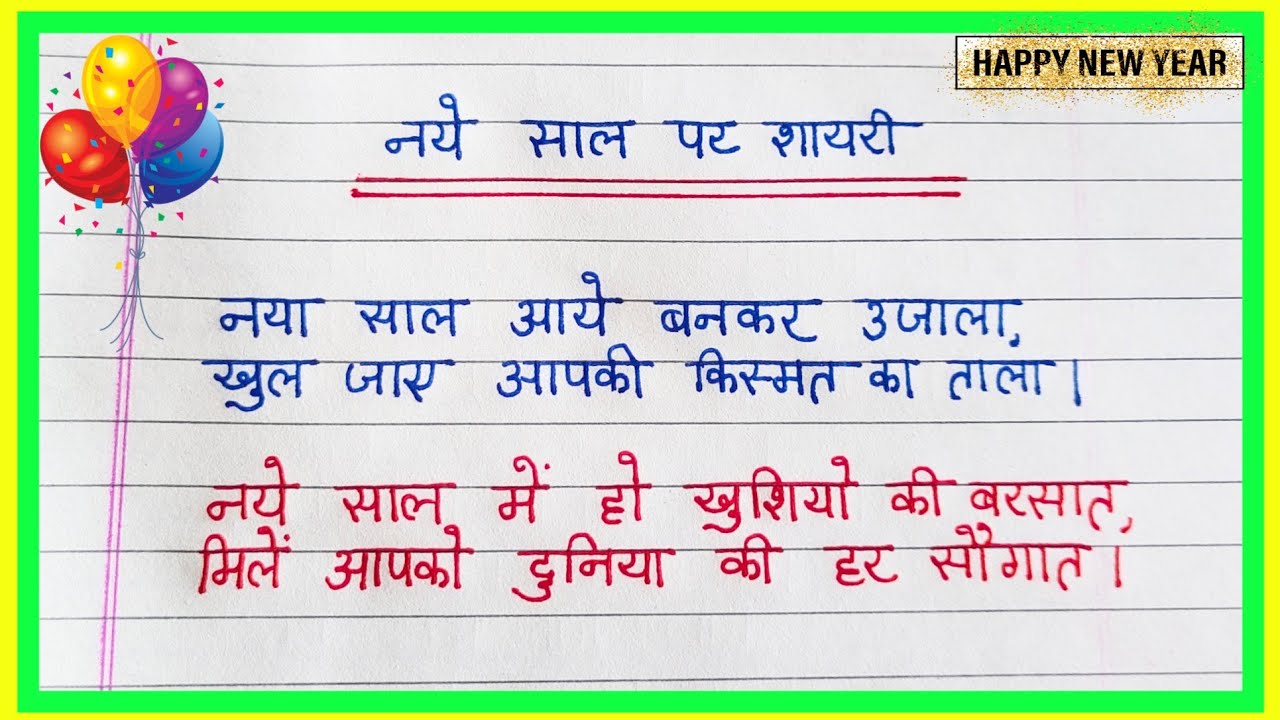 HAPPY NEW YEAR
नये साल पर शायरी
नया साल आये बनकर उजाला,
खुल जाए आपकी किस्मत का ताला।
नये साल में हो खुशियो की बरसात,
मिलें आपको दुनिया की हर सौगात।